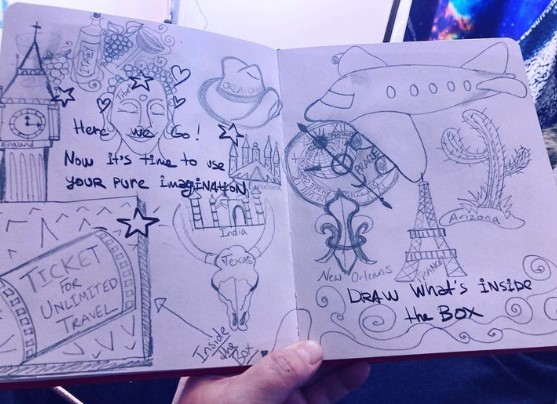 OKLAHOMA
Here we Go!
England
Now It's time to use
YOUR PURE ImagINATION
Barcelona
India
Texas
TICKET
FOR
UNLIMITED
TRAVEL
Inside
the
Box
Arizona
New Orleans
PARIS
DRAW What's inside
the BOX